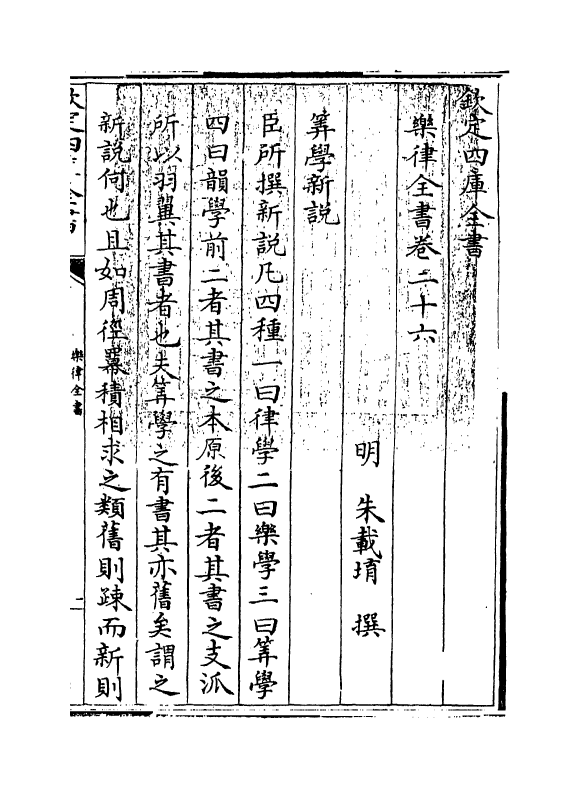 欽定四庫全書
樂律全書卷二十六
明 朱載堉 撰
筭學新説
臣所撰新説凡四種一曰律學二曰樂學三曰筭學
四曰韻學前二者其書之本原後二者其書之支派
所以羽翼其書者也夫筭學之有書其亦舊矣謂之
新説何也且如周徑羃積相求之類舊則踈而新則
樂律全書